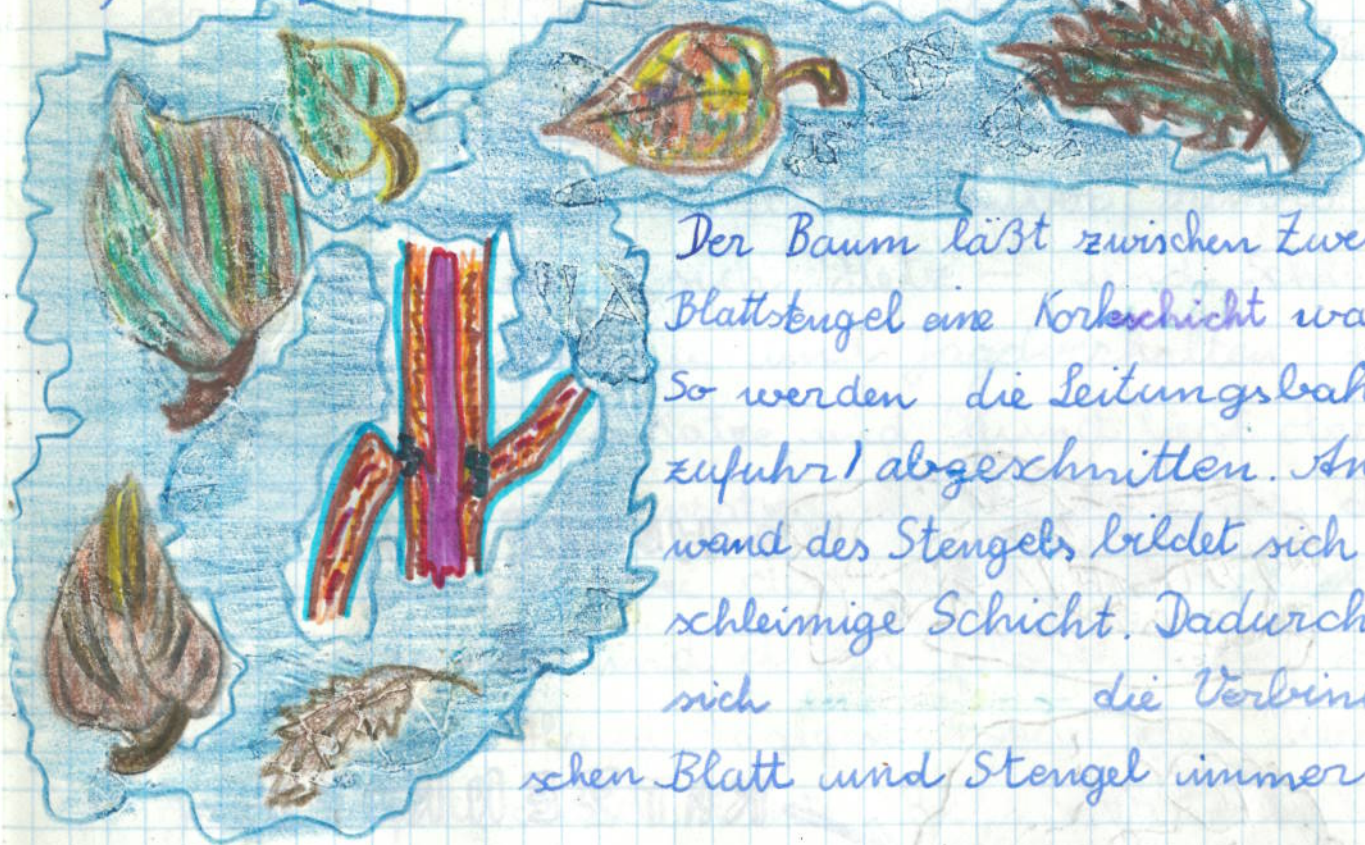 Der Baum läßt zwischen Zwe
Blattstengel eine Korkschicht wa
So werden die Leitungsbah
zufuhr) abgeschnitten. An
wand des Stengels bildet sich
schleimige Schicht. Dadurch
sich die Verbin
schen Blatt und Stengel immer